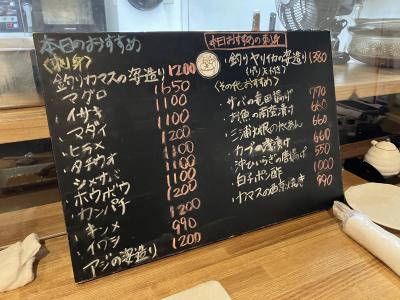 本日のおすすめ
(刺身)
釣りカマスの姿造り 1200
マグロ 1650
イサキ 1100
マダイ 1100
ヒラメ 1200
タチウオ 1100
シメサバ 1100
ホウボウ 1200
カンパチ
キンメ 1200
イワシ 990
アジの姿造り 1200
本日おすすめの刺身
釣りヤリイカの姿造り 1380
(ゲソ天付き)
(その他おすすめ)
サバの竜田揚げ 770
お魚の南蛮漬け 660
三浦大根のべっこうあん 660
カブの唐漬け 660
沖ひいらぎの唐揚げ 550
白子ポン酢 1000
カマスの西京焼き 990